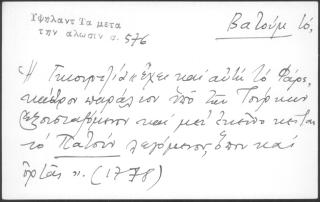 Υψηλαντ Τα μετα
την αλωσιν σ. 576
Βατούμ τό,
"Η Γκιουρτζία έχει και αυτή το Φάρς,
κάστρο παράλιον υπό των Τούρκων
εξουσιαζόμενον και μετ' εκείνο κείται
το Πατούμ λεγόμενον, όπου και
". (1778)